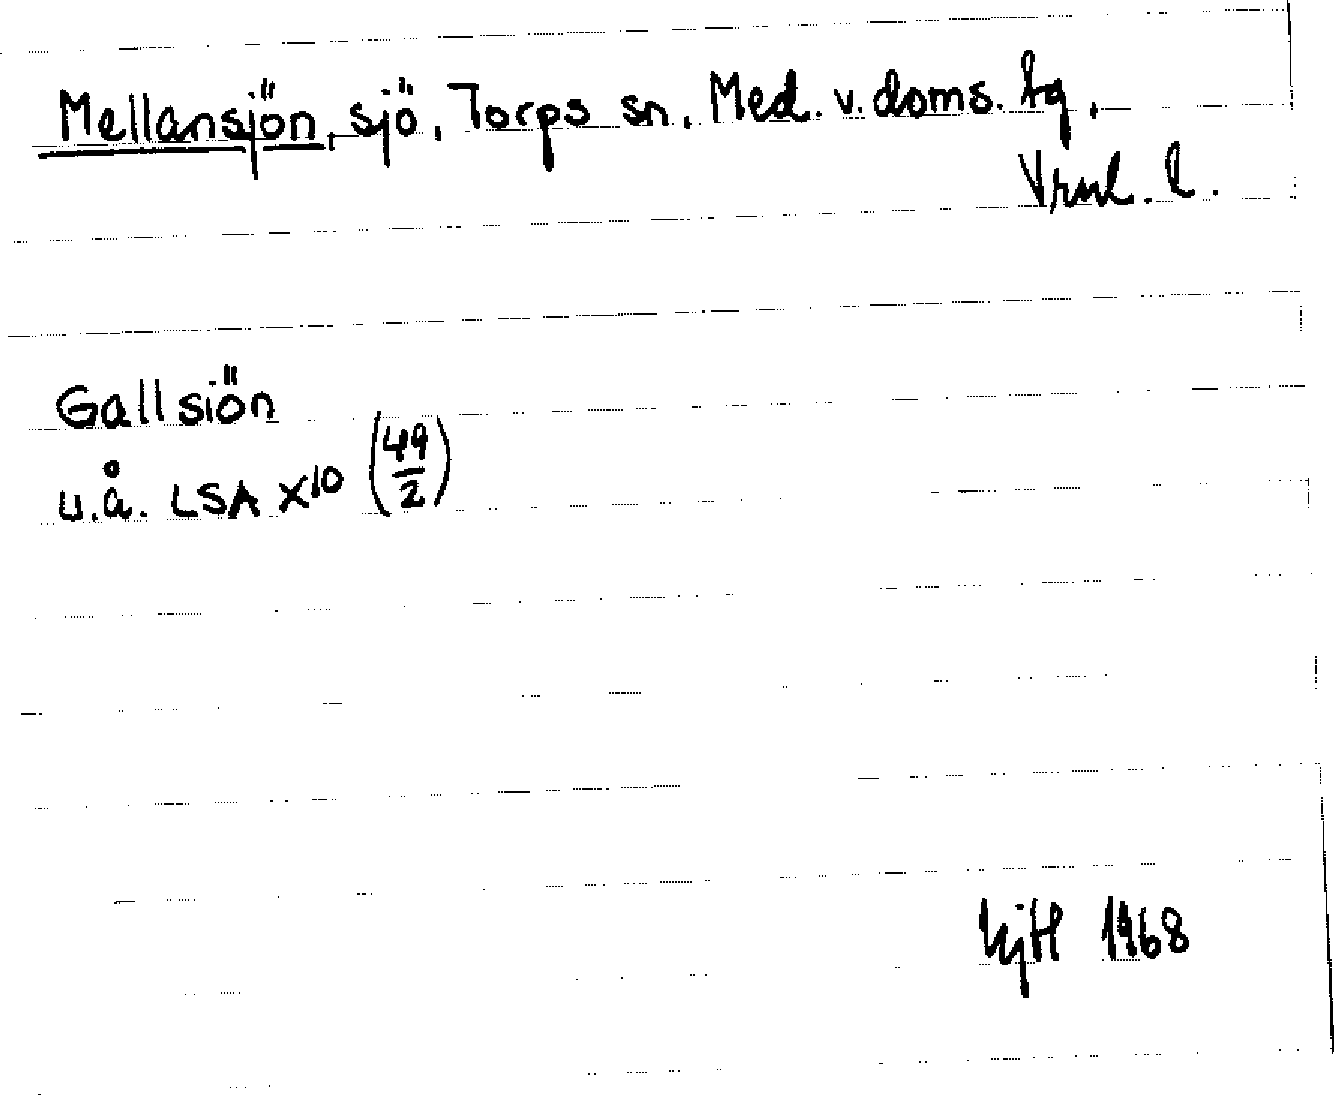 Mellansjön, sjö, Torps sn. Med. v. doms. tg,
Vrnl. l.
Gallsiön
u.å. LSA X10 (49/2)
1968